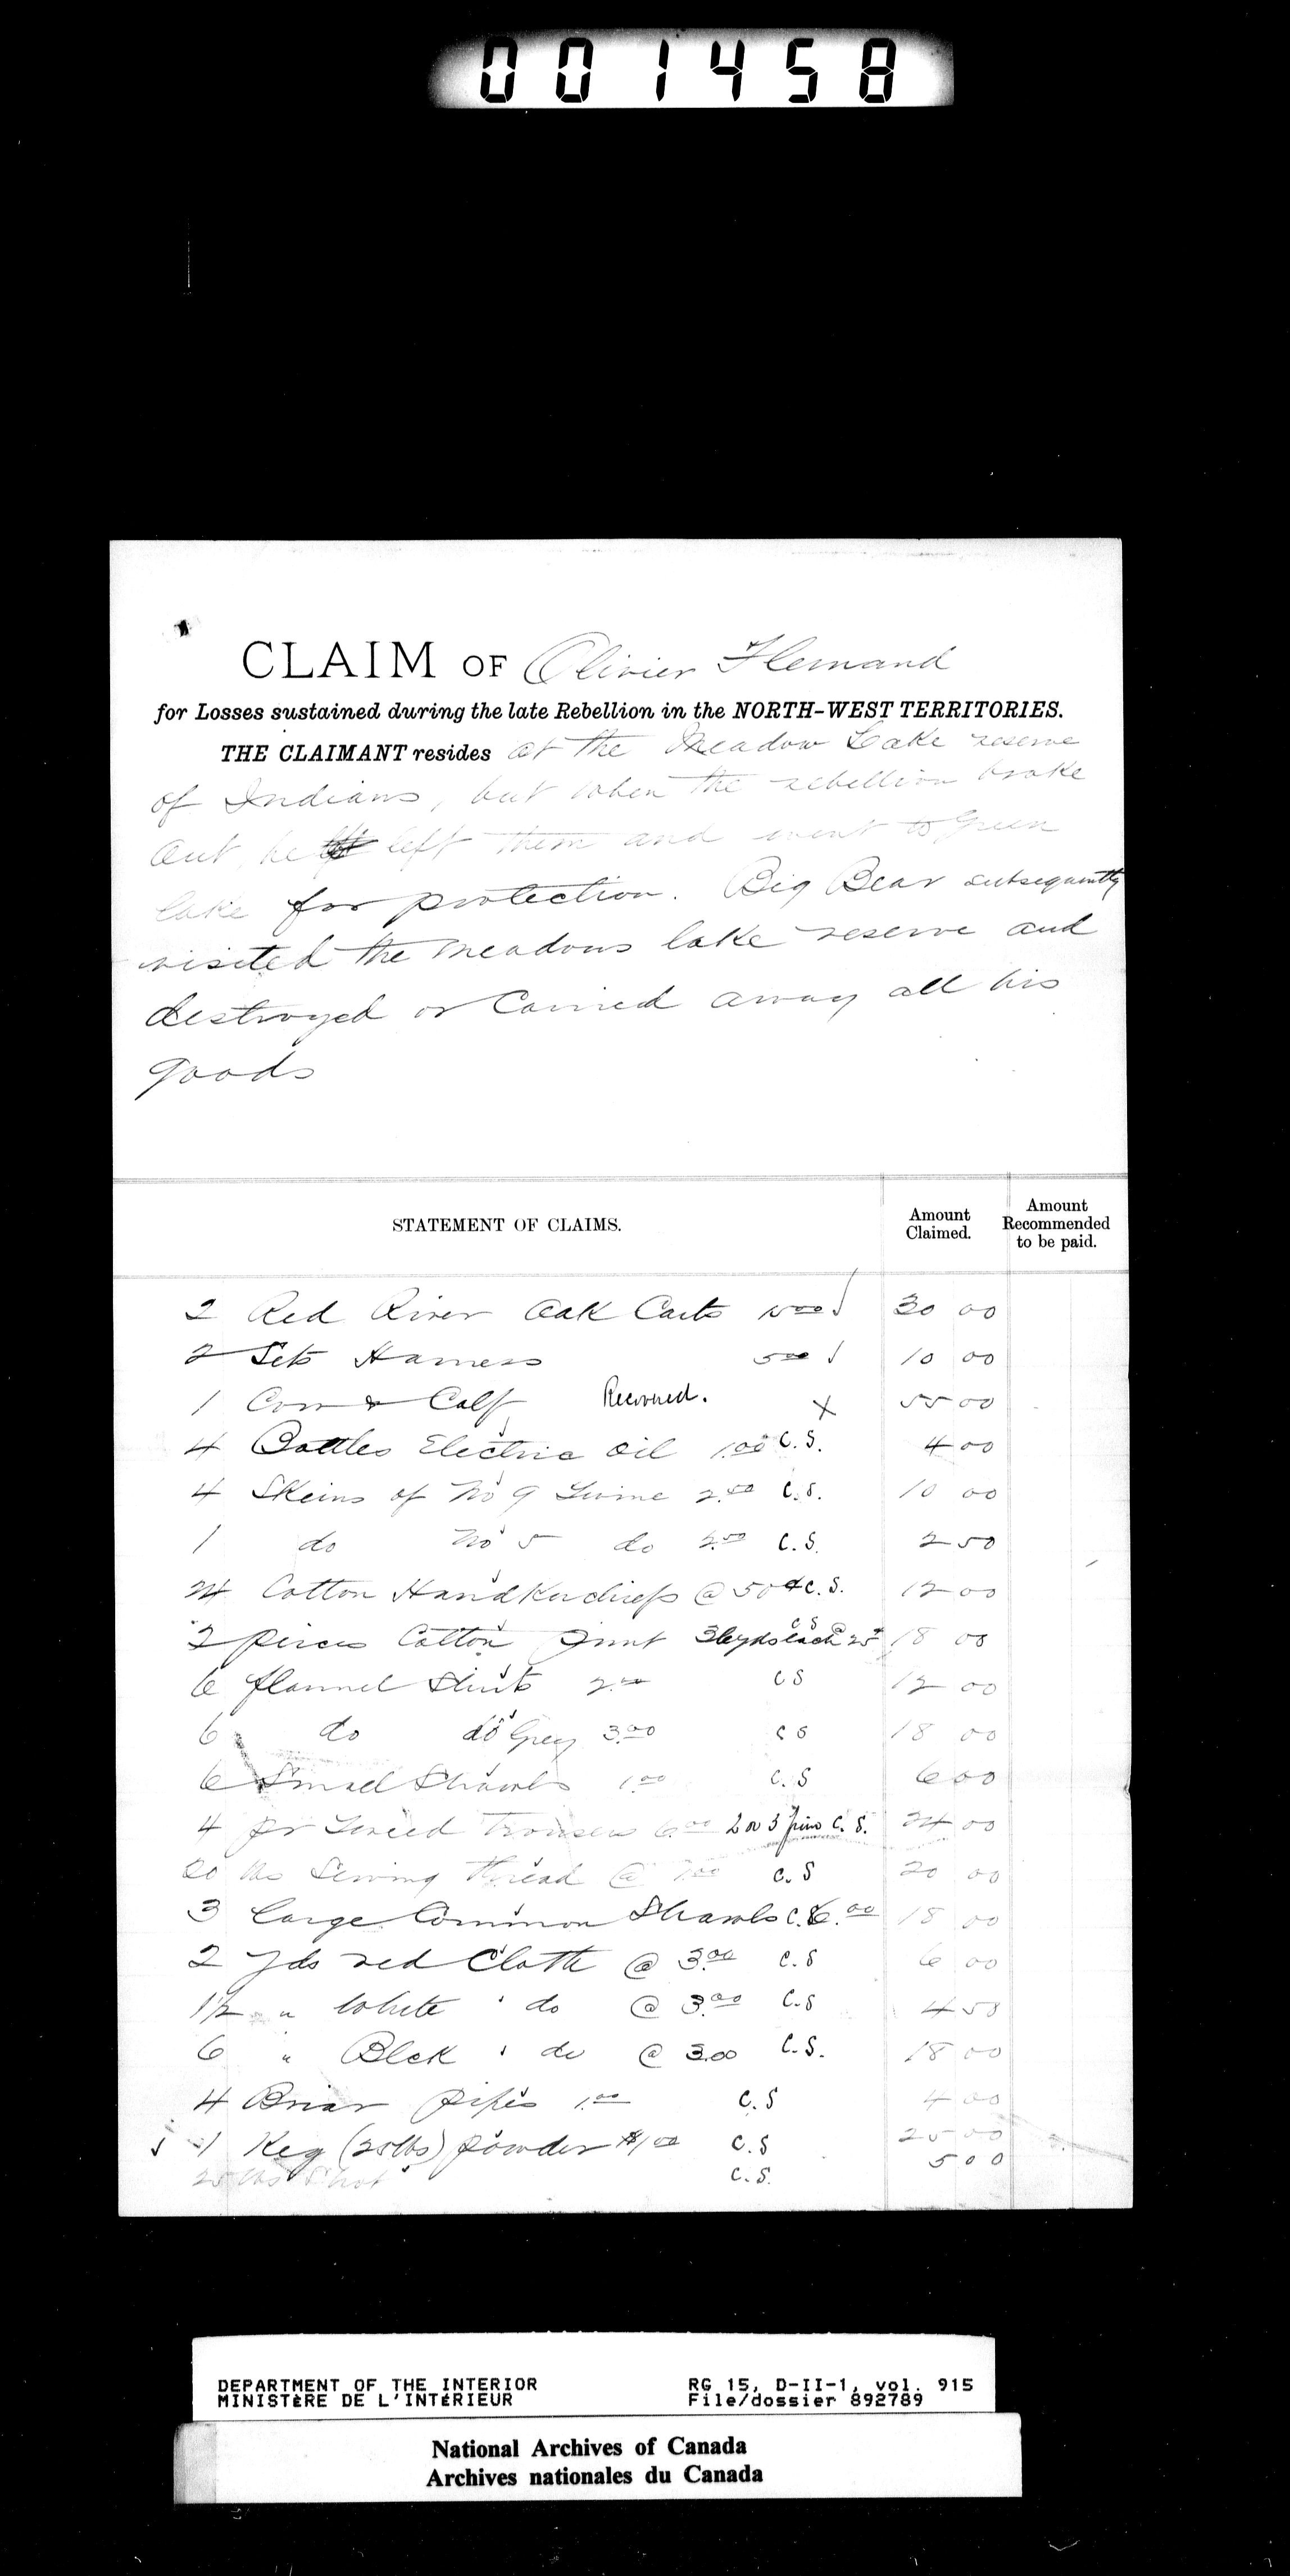 001458
CLAIM OF Olivier Flemand
for Losses sustained during the late Rebellion in the NORTH-WEST TERRITORIES.
THE CLAIMANT resides at the Meadow Lake reserve
of Indians, but when the rebellion broke
out, he left them and went to Green
lake for protection. Big Bear subsequently
visited the meadows lake reserve and
destroyed or Carried away all his
goods
STATEMENT OF CLAIMS. Amount Claimed. Amount Recommended to be paid.
2 Red River Oak Carts 15 00 √ 30 00
2 Sets Harness 5 00 √ 10 00
1 Cow & Calf Recovered. X 55 00
4 Bottles Electric Oil 1.00 C.S. 4 00
4 Skeins of No 9 Twine 2.50 C.S. 10 00
1 do No 5 do 2.50 C.S. 2 50
24 Cotton Handkerchiefs @ 50¢ C.S. 12 00
2 pieces Cotton Print 36 yds each @ 25 CS 18 00
6 flannel Shirts 2.00 CS 12 00
6 do do Grey 3.00 CS 18 00
6 Small Shawls 1.00 C.S 6 00
4 pr Tweed Trousers 6.00 2 or 3 pairs C.S. 24 00
20 lbs Sewing thread @ 1.00 C.S 20 00
3 large Common Shawls C.S 6.00 18 00
2 Yds red Cloth @ 3.00 C.S 6 00
1½ " White do @ 3.00 C.S 4 50
6 " Blck do @ 3.00 C.S. 18 00
4 Briar pipes 1.00 C.S 4 00
√ 1 Keg (25lbs) powder $1.00 C.S 25 00
25 lbs Shot C.S. 5 00
DEPARTMENT OF THE INTERIOR RG 15, D-II-1, vol. 915
MINISTÈRE DE L'INTÉRIEUR File/dossier 892789
National Archives of Canada
Archives nationales du Canada